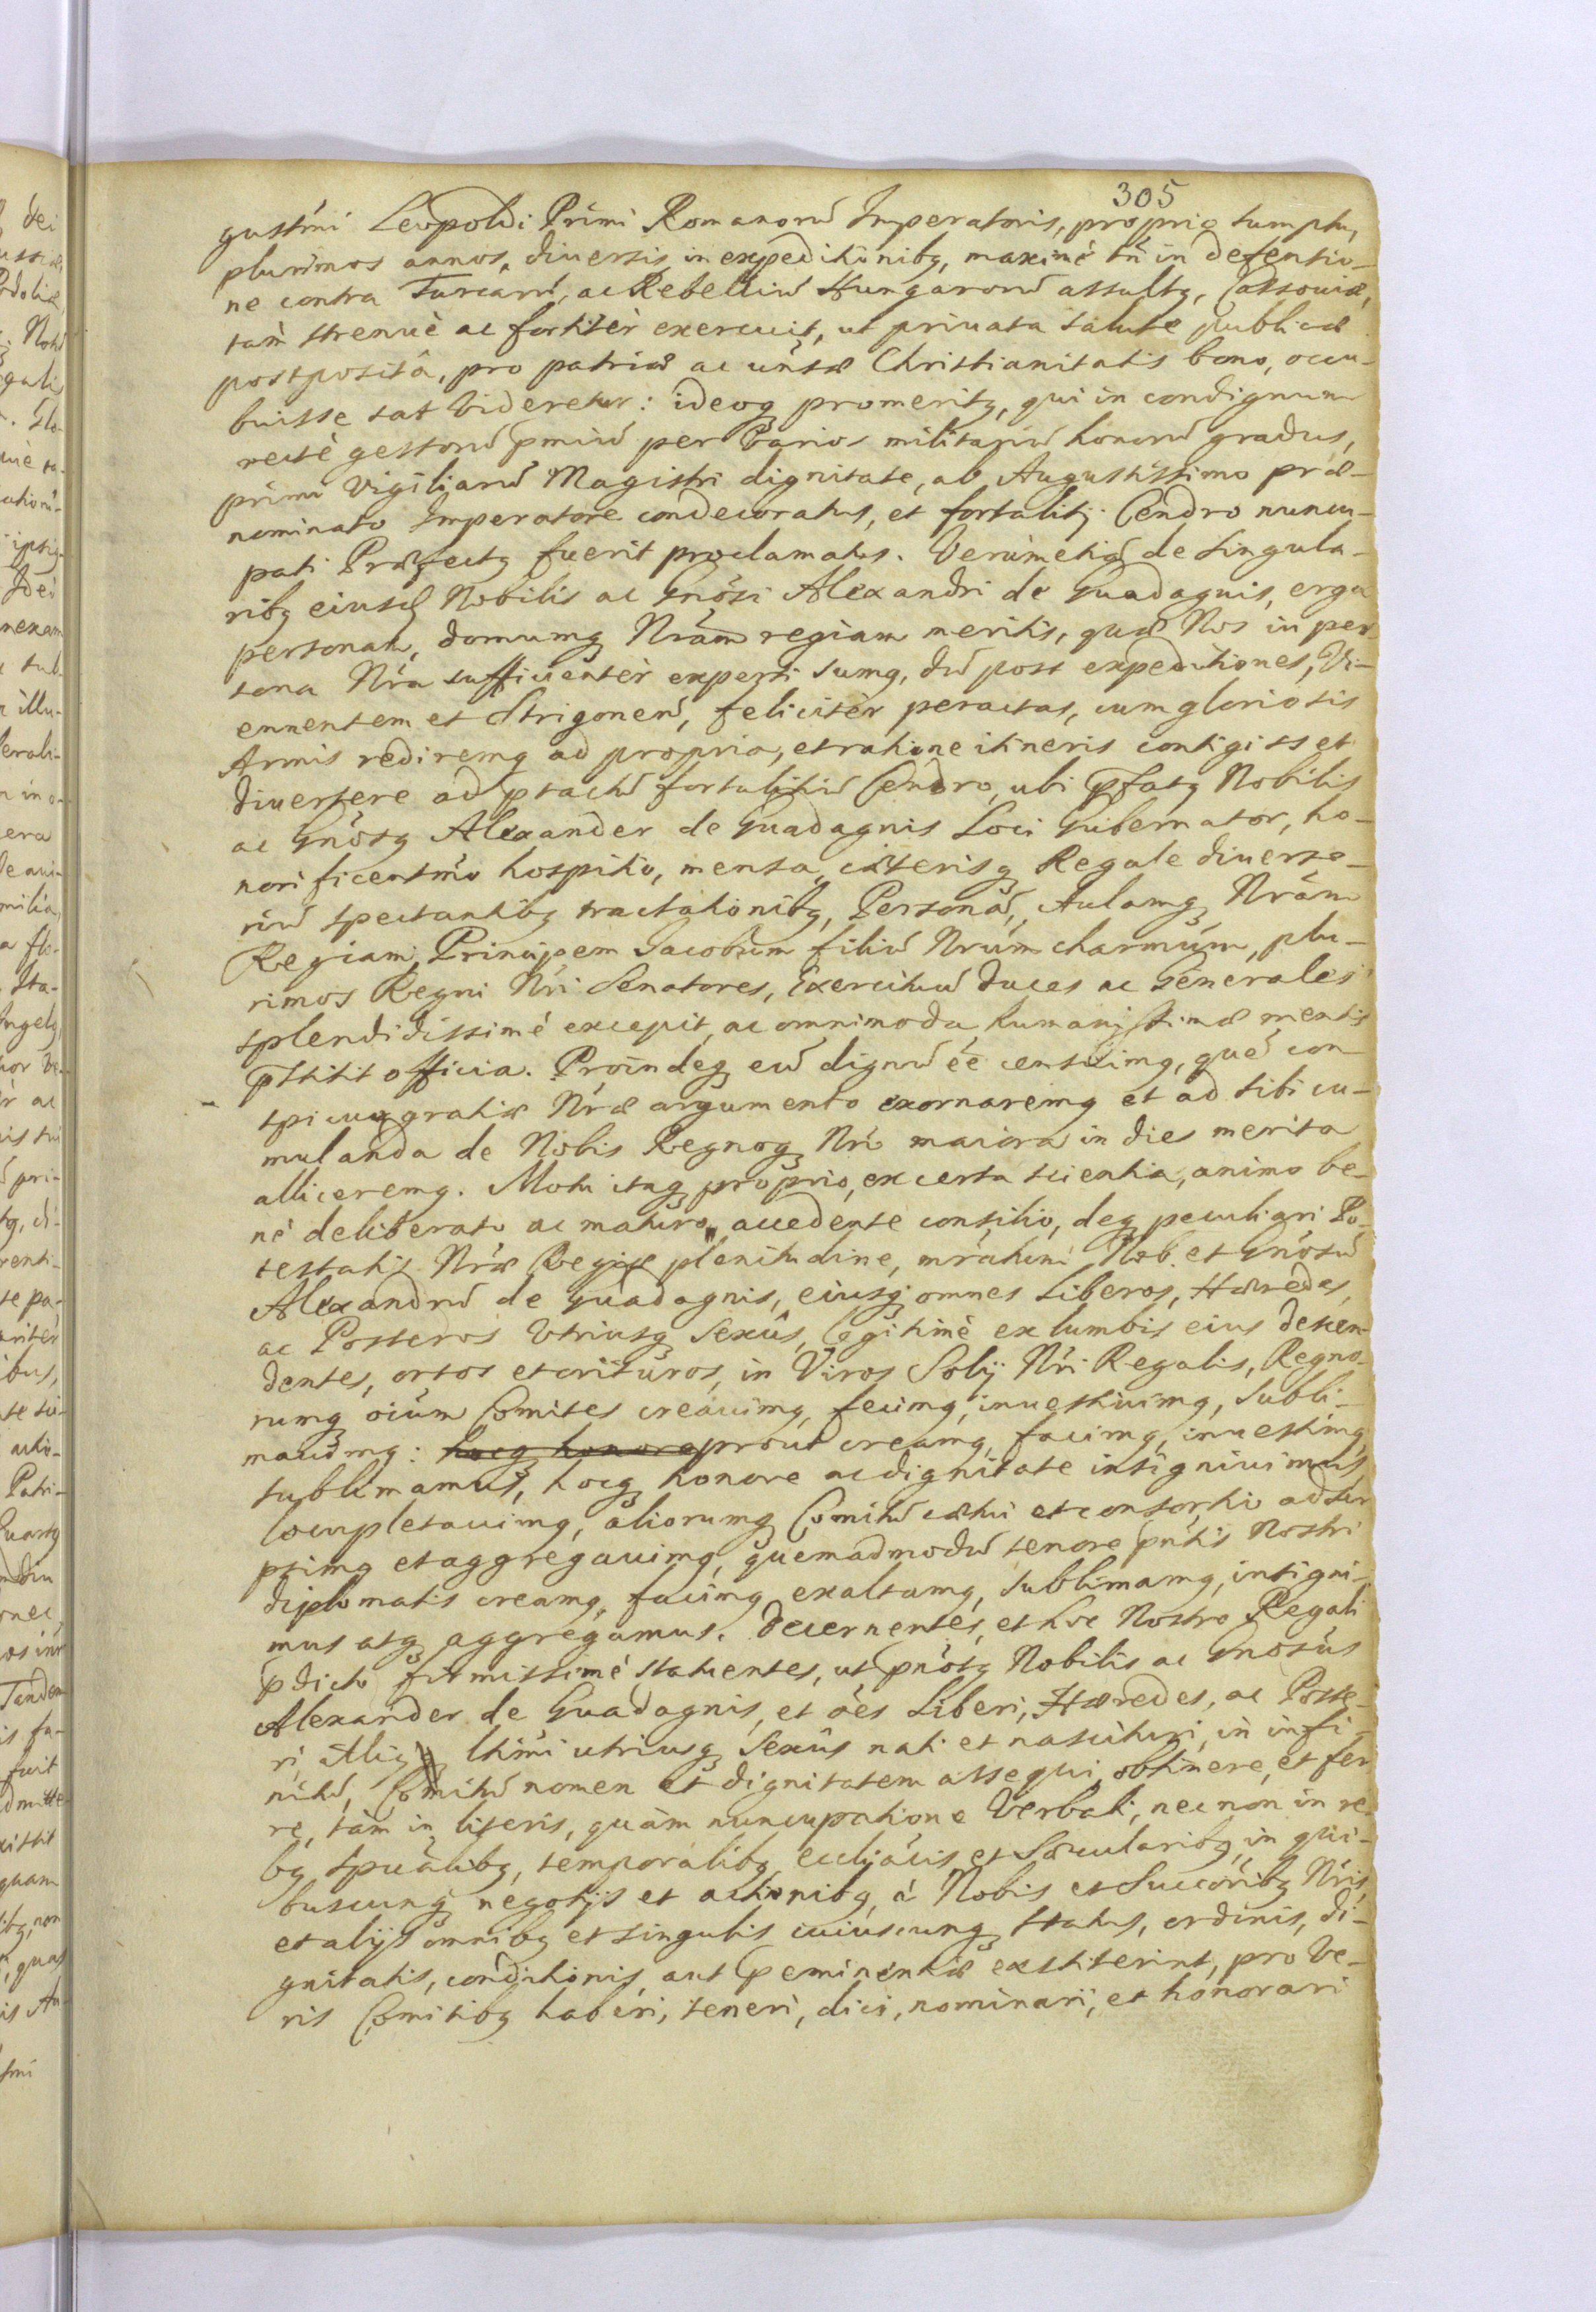 305
gustmi Leopoldi Primi Romanorũ Imperatoris, proprio sumptu,
plurimos annos, diuersis in expeditionibq, maximè tñ in defensio-
ne contra Turcarũ, ac Rebelliũ Hungarorũ assultq, Cassouiæ,
tam strenuè ac fortitèr exercuit, ut priuata salute publicæ
postpositâ, pro patriæ ac uñsæ Christianitatis bono, occu-
buisse sat videretur: ideoq promeritq, qui in condignum
rectè gestorũ pmiũ per varios militariũ honorũ gradus,
primi Vigiliarũ Magistri dignitate, ab Augustissimo præ-
nominato Imperatore condecoratus, et fortalitij Cendro nuncu-
pati Præfectq fuerit proclamatus. Verùmetiã de singula-
ribq eiusd Nobilis ac Gnosi Alexandri de Guadagnis, erga
personam, domumq Nram regiam meritis, quæ Nos in per-
sona Nra sufficientèr experti sumq, dũ post expeditiones, Vi-
ennensem et Strigonen, felicitèr peractas, cum gloriosis
Armis rediremq ad propria, et ratione itineris contigisset
diuertere ad ptactũ fortalitiũ Cendro, ubi pfatq Nobilis
ac Gnosq Alexander de Guadagnis Loci Gubernator, ho-
norificentmo hospitio, mensa, cæterisq Regale diuerso-
riũ spectantibq tractationibq, Personã, Aulamq Nram
Regiam, Principem Jacobum filiũ Nrum charmum, plu-
rimos Regni Nri Senatores, Exercituũ Duces ac Generales
splendidissimè excepit, ac omnimoda humanissimæ mentis
pstitit officia. Proindeq eũ dignũ ee censuimq, quẽ con-
spicuo gratiæ Nræ argumento exornaremq et ad sibi cu-
mulanda de Nobis Regnoq Nro maiora in dies merita
alliceremq. Motu itaq proprio, ex certa scientia, animo be-
nè deliberato ac maturo accedente consilio, deq peculiari Po-
testatis Nræ Regiæ plenitudine, mratum Nob. et Gnosũ
Alexandrũ de Guadagnis, eiusq omnes Liberos, Hæredes,
ac Posteros Vtriusq Sexûs, legitimè ex lumbis eius descen-
dentes, ortos et orituros, in Viros Solij Nri Regalis, Regno-
rumq oium Comites creauimq, fecimq, inuestiuimq, subli-
mauimq: hocq honore prout creamq, facimq, inuestimq,
sublimamus, hocq honore ac dignitate insigniuimus,
locupletauimq, aliorumq Comitũ cætui et consortio adscri-
psimq et aggregauimq, quemadmodũ tenore pntis Nostri
diplomatis creamq, facimq exaltamq, sublimamq, insigni-
mus atq aggregamus. Decernentes, et hoc Nostro Regali
pdicto firmissimè statuentes, ut pnosq Nobilis ac Gnosus
Alexander de Guadagnis, et oes Liberi, Hæredes, ac Poste-
ri, Aliq ltimi utriusq Sexûs nati et nascituri, in infi-
nitũ, Comitũ nomen et dignitatem assequi, obtinere, et fer
re, tàm in literis, quàm nuncupatione Verbali, necnon in re-
bq spũalibq, temporalibq, ecclijacis et Sæcularibq, in qui-
buscunq negotijs et actionibq, à Nobis et Succoribq Nris,
et alijs omnibq et singulis cuiuscunq status, ordinis, di-
gnitatis, conditionis, aut peminentiæ exstiterint, pro Ve-
ris Comitibq haberi, teneri, dici, nominari, et honorari